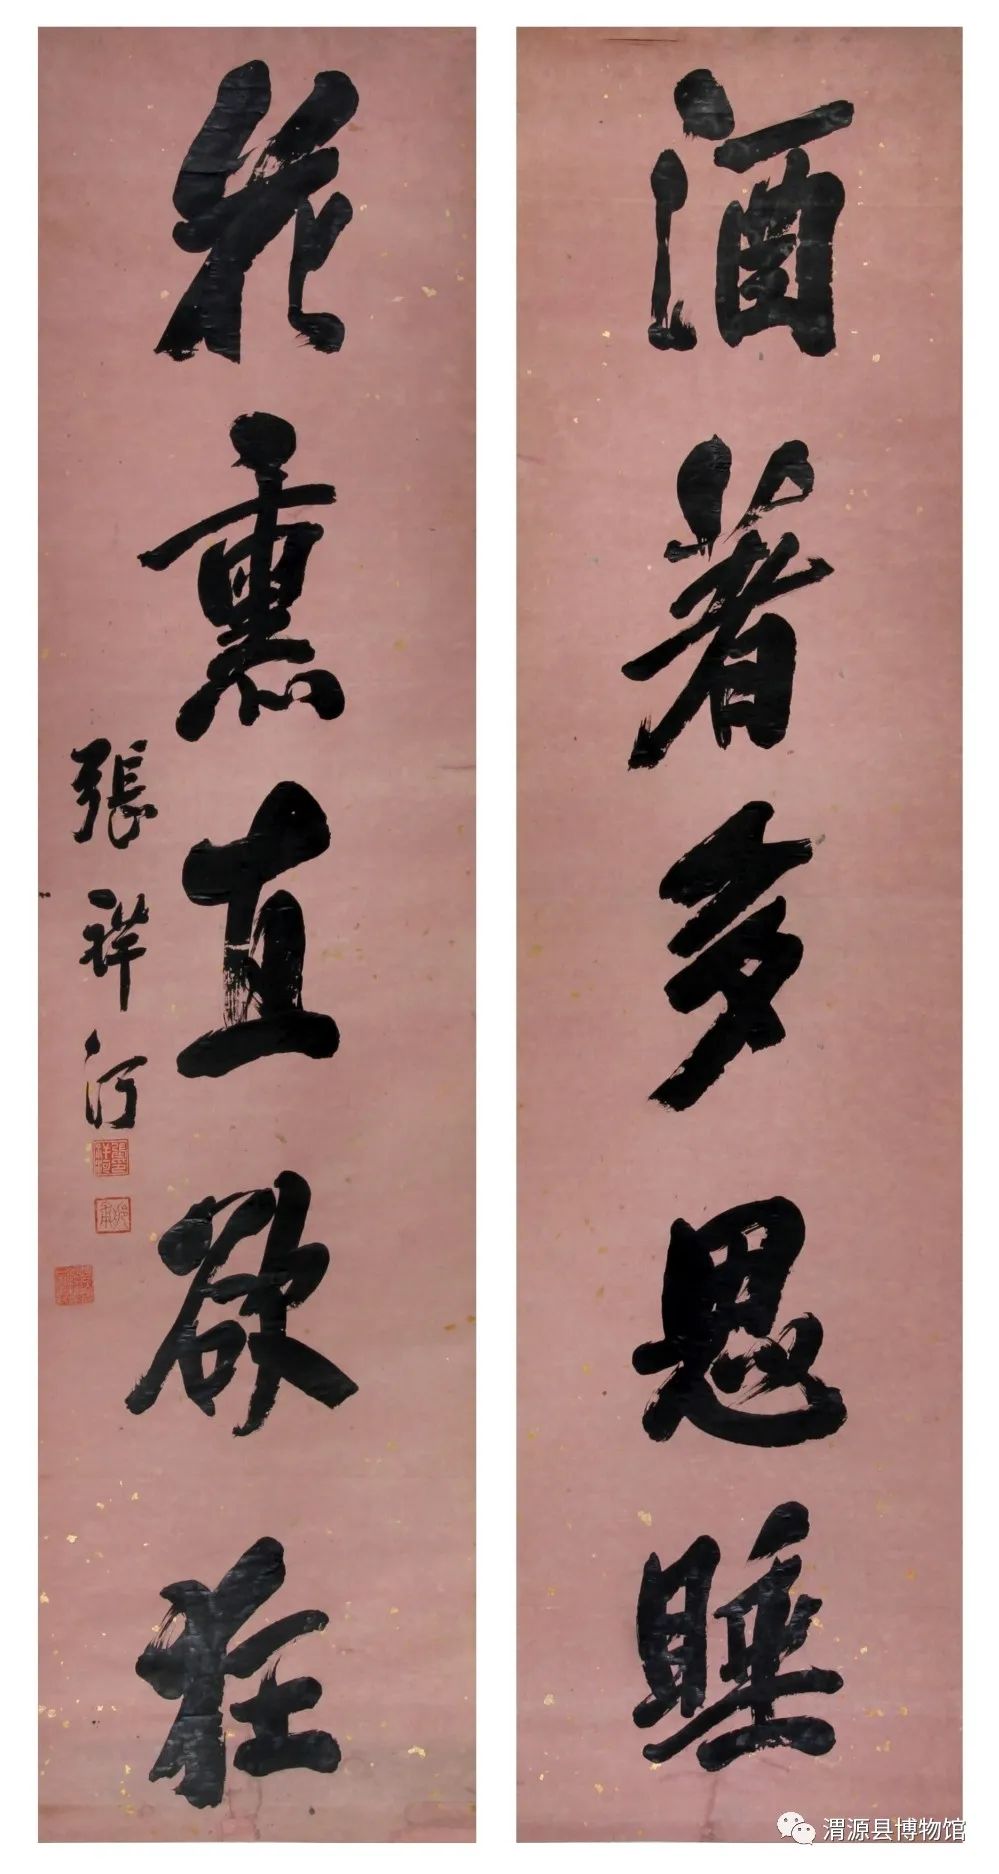 酒著多思睡
花熏直欲狂
張祥河
渭源县博物馆